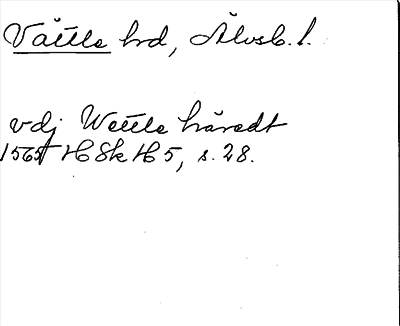 Vättle hrd, Älvsb. l.
vdj Wettle häredt
1565 HSkH5, s. 28.